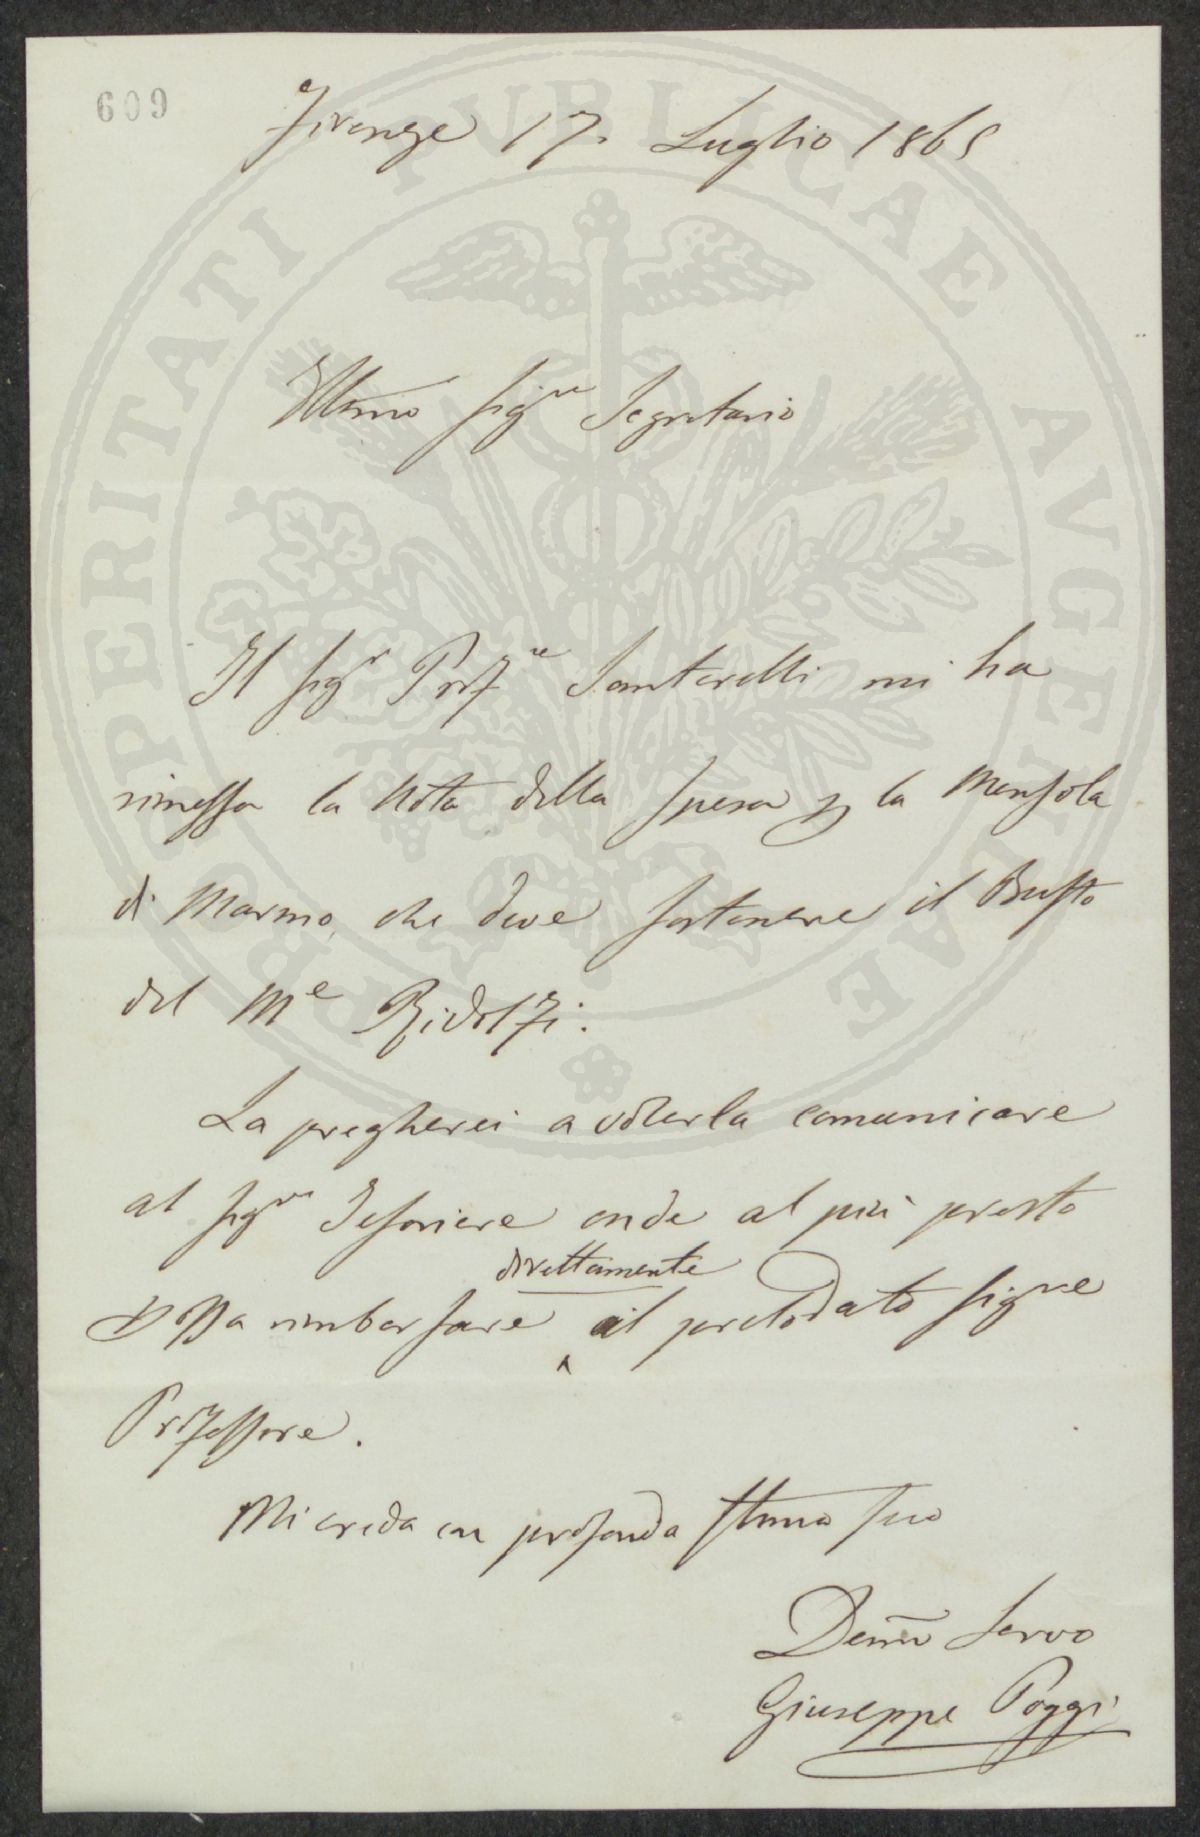 609
Firenze 17. Luglio 1865
Illmo Sigre Segretario
Il Sigr Profre Santarelli mi ha
rimessa la Nota della Spesa p la Mensola
di Marmo, che deve sostenere il Busto
del Me Ridolfi.
La pregherei a volerla comunicare
al Sigre Tesoriere onde al più presto
direttamente
possa rimborsare il prelodato Sigre
Professore.
Mi creda con profonda stima suo
Demo Servo
Giuseppe Poggi
PROSPERITATI PUBLICAE AVGENDAE